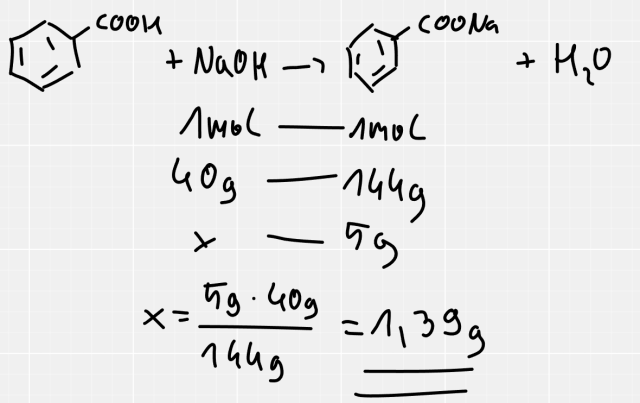 COOH + NaOH → COONa + H₂O
1mol — 1mol
40g — 144g
x — 5g
x = 5g · 40g / 144g = 1,39g